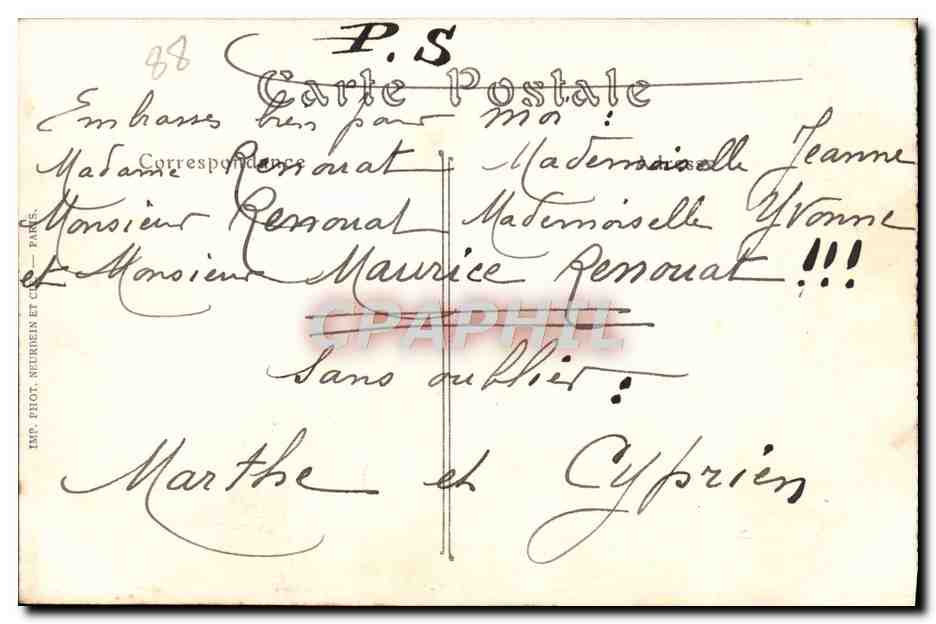 88
P.S
Carte Postale
Embrasses bien pour moi :
Correspondance
Madame Renouat Mademoiselle Jeanne
Monsieur Renouat Mademoiselle Yvonne
et Monsieur Maurice Renouat !!!
CPAPHIL
sans oublier :
Marthe et Cyprien
IMP. PHOT. NEURDEIN ET CIE — PARIS.